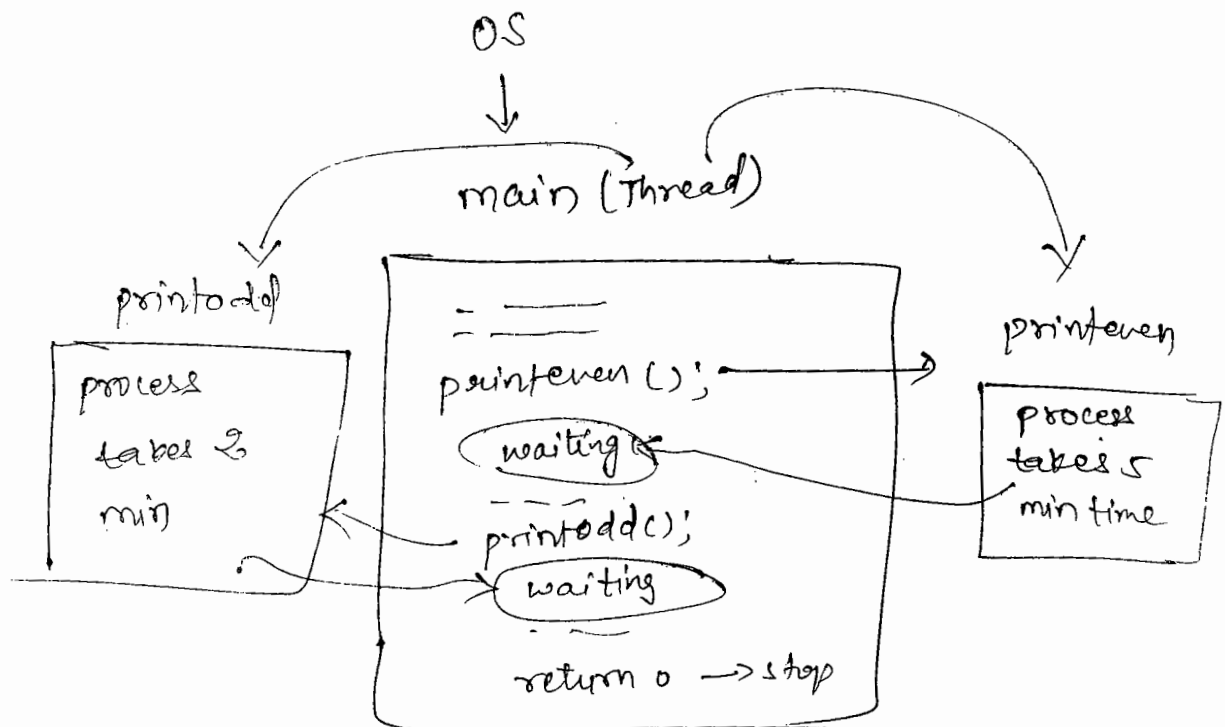 OS
main (Thread)
printodd
process
takes 2
min
printeven();
waiting
printodd();
waiting
return 0 → stop
printeven
process
takes 5
min time